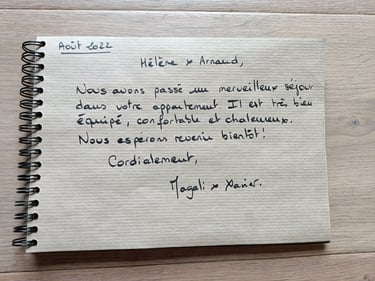 Août 2022
Hélène & Arnaud,
Nous avons passé un merveilleux séjour
dans votre appartement. Il est très bien
équipé, confortable et chaleureux.
Nous espérons revenir bientôt!
Cordialement,
Magali & Xavier.